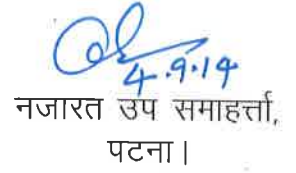 4.9.14
नजारत उप समाहर्त्ता,
पटना।